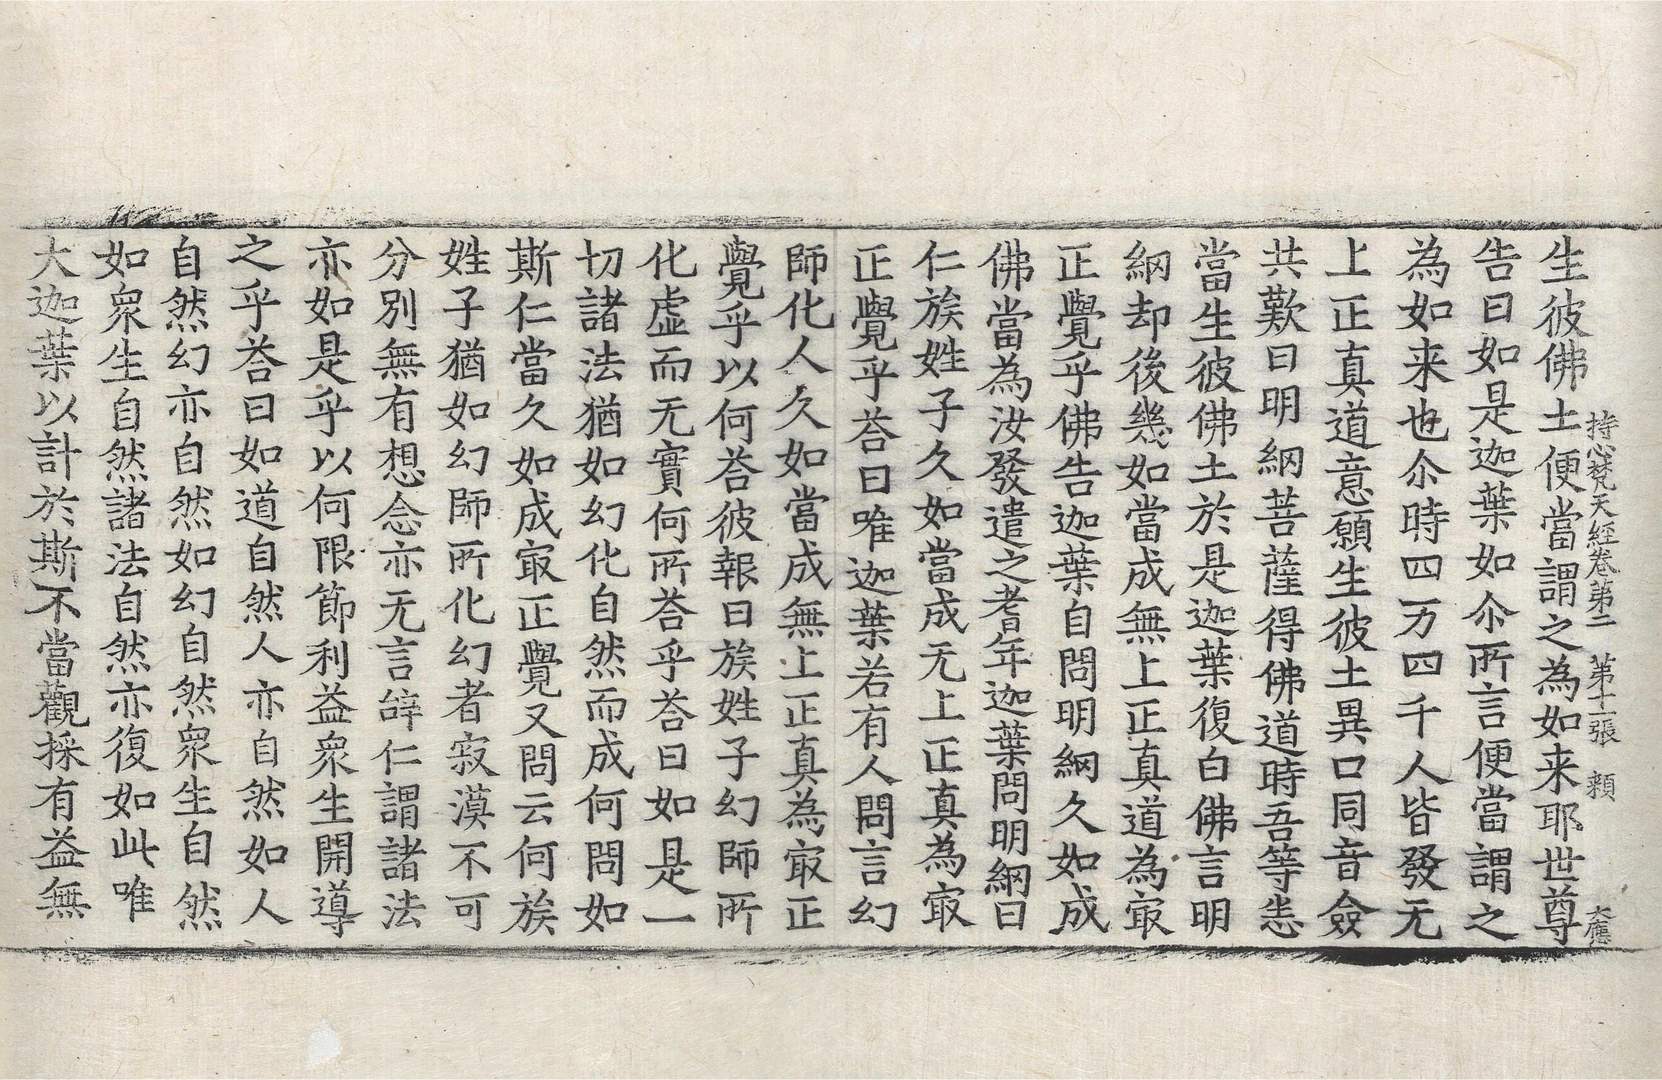 持心梵天經卷第二　第十一張　頼　大應
生彼佛土便當謂之為如来耶世尊
告曰如是迦葉如尒所言便當謂之
為如来也尒時四万四千人皆發无
上正真道意願生彼土異口同音僉
共歎曰明網菩薩得佛道時吾等恙
當生彼佛土於是迦葉復白佛言明
網却後幾如當成無上正真道為㝡
正覺乎佛告迦葉自問明網久如成
佛當為汝發遣之耆年迦葉問明網曰
仁族姓子久如當成无上正真為㝡
正覺乎荅曰唯迦葉若有人問言幻
師化人久如當成無上正真為㝡正
覺乎以何荅彼報曰族姓子幻師所
化虛而无實何所荅乎荅曰如是一
切諸法猶如幻化自然而成何問如
斯仁當久如成㝡正覺又問云何族
姓子猶如幻師所化幻者寂漠不可
分別無有想念亦无言辝仁謂諸法
亦如是乎以何限節利益衆生開導
之乎荅曰如道自然人亦自然如人
自然幻亦自然如幻自然衆生自然
如衆生自然諸法自然亦復如此唯
大迦葉以計於斯不當觀採有益無